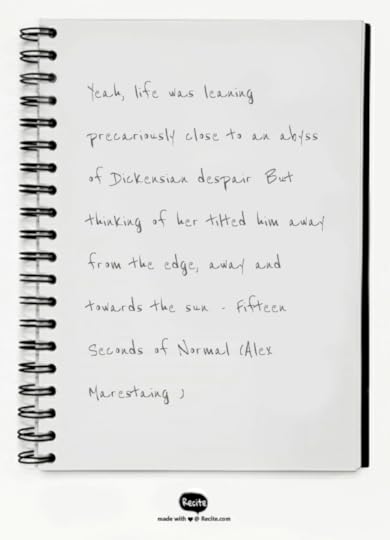 Yeah, life was leaning
precariously close to an abyss
of Dickensian despair But
thinking of her tilted him away
from the edge, away and
towards the sun - Fifteen
Seconds of Normal (Alex
Marestaing )
Recite
made with ♥ @ Recite.com